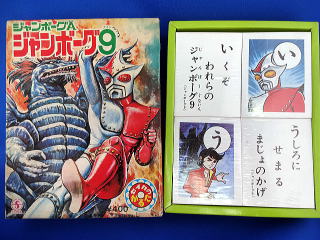 ジャンボーグA
ジャンボーグ9
¥400
いくぞ
われらの
ジャンボーグ9
い
う
うしろに
せまる
まじょのかげ